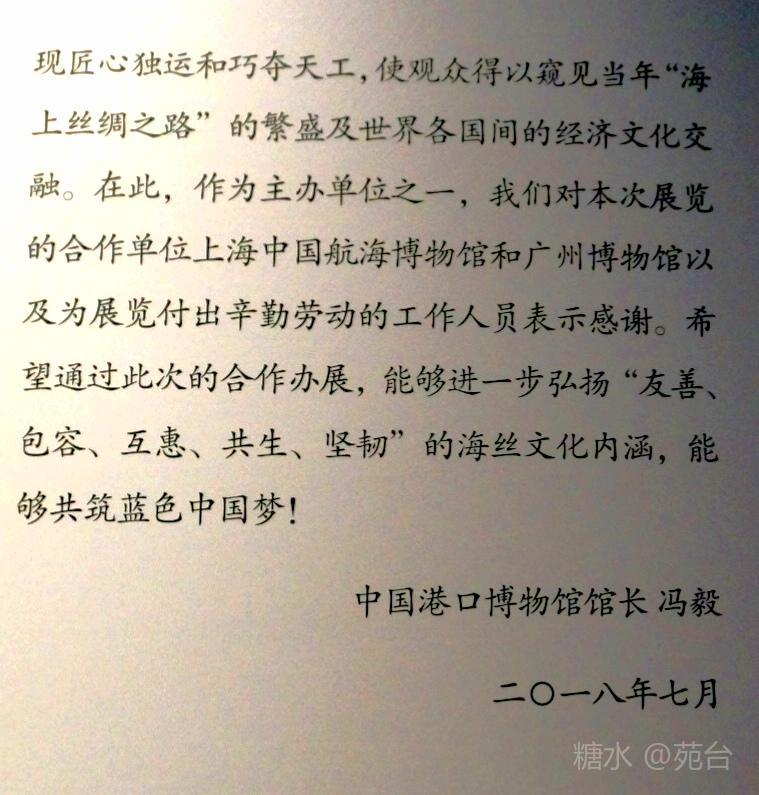 现匠心独运和巧夺天工，使观众得以窥见当年“海
上丝绸之路”的繁盛及世界各国间的经济文化交
融。在此，作为主办单位之一，我们对本次展览
的合作单位上海中国航海博物馆和广州博物馆以
及为展览付出辛勤劳动的工作人员表示感谢。希
望通过此次的合作办展，能够进一步弘扬“友善、
包容、互惠、共生、坚韧”的海丝文化内涵，能
够共筑蓝色中国梦！
中国港口博物馆馆长 冯毅
二〇一八年七月
糖水 @苑台